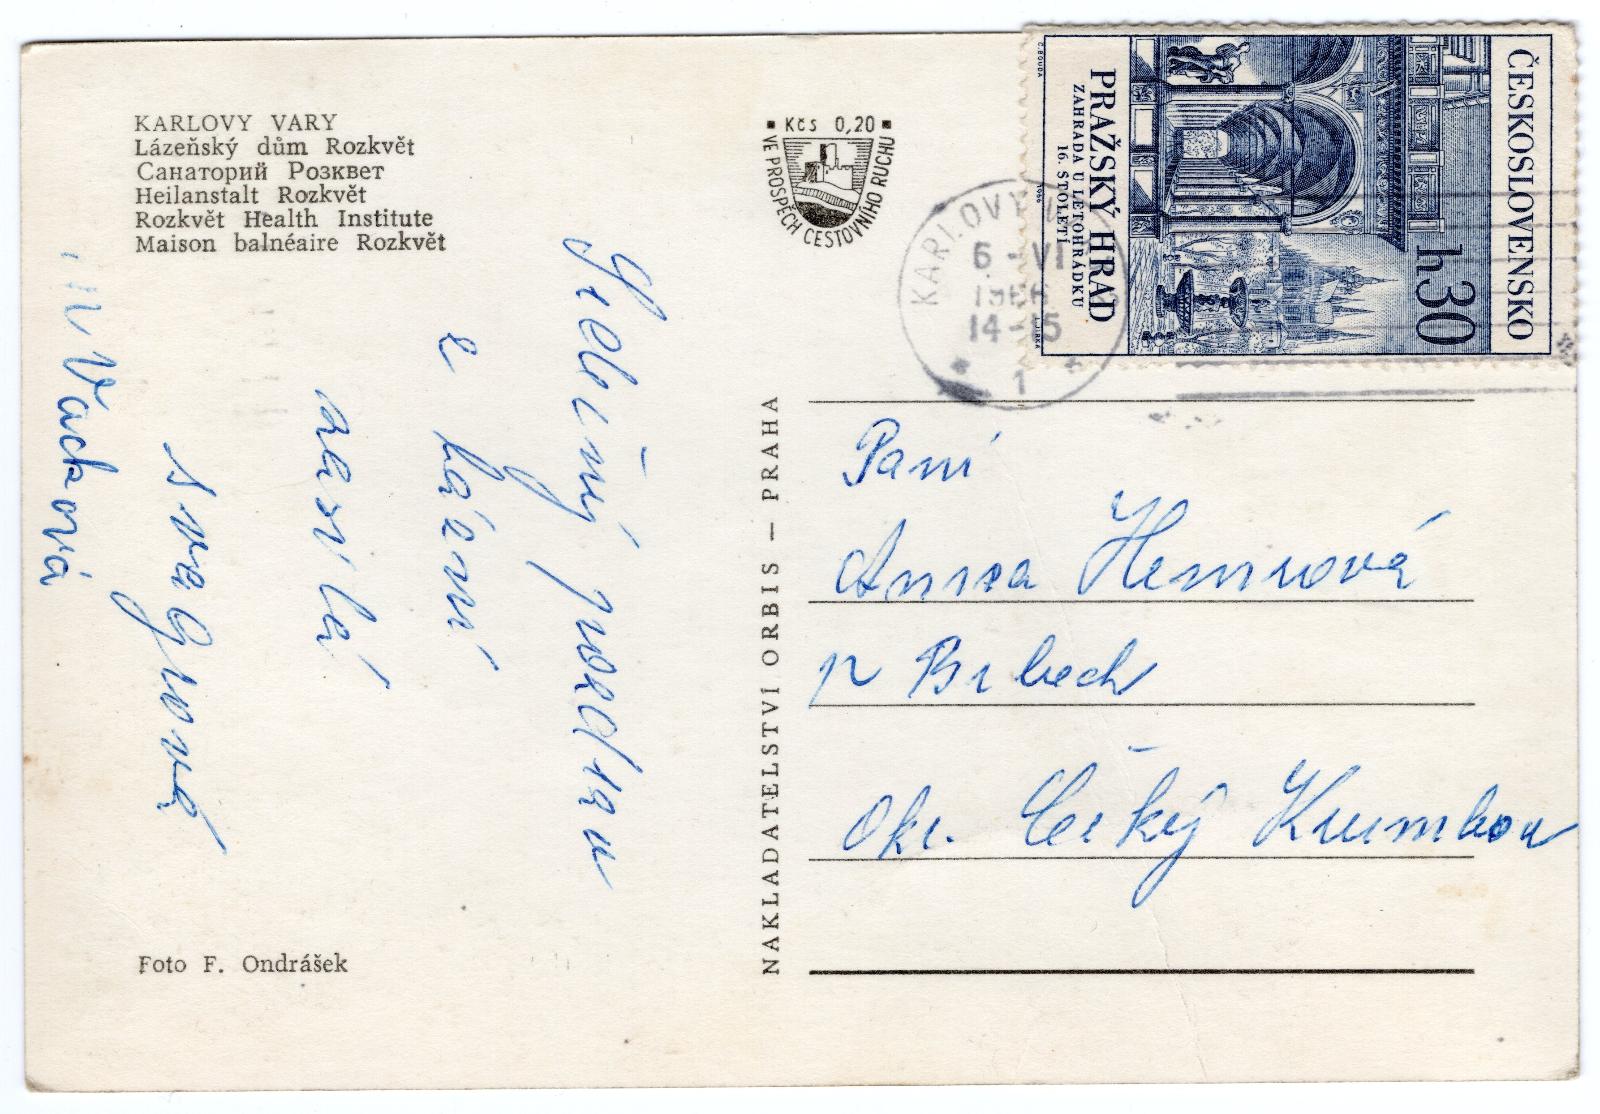 KARLOVY VARY
Lázeňský dům Rozkvět
Санаторий Розквет
Heilanstalt Rozkvět
Rozkvět Health Institute
Maison balnéaire Rozkvět
Srdečný pozdrav
z lázní
zasílá
švagrová
M Vacková
Foto F. Ondrášek
NAKLADATELSTVÍ ORBIS — PRAHA
Kčs 0,20
VE PROSPĚCH CESTOVNÍHO RUCHU
KARLOVY
6 -VI
14-15
1
ČESKOSLOVENSKO
h30
PRAŽSKÝ HRAD
ZAHRADA U LETOHRÁDKU
16. STOLETÍ
C. BOUDA
1966
J. JIRKA
Paní
Anna
okr. Český Krumlov